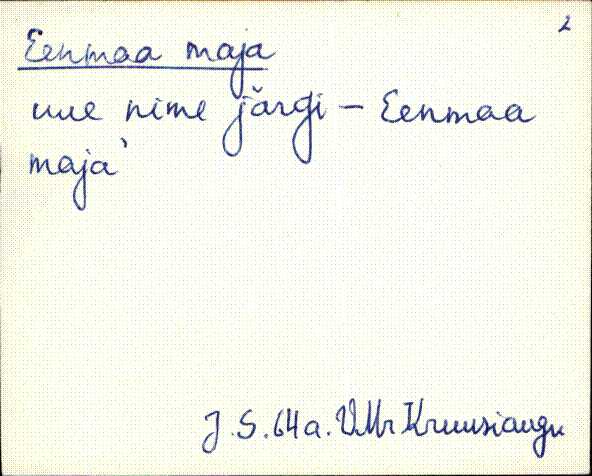 2
Eenmaa maja
uue nime järgi – Eenmaa
maja'
J.S. 64 a. VMr Kruusiaugu